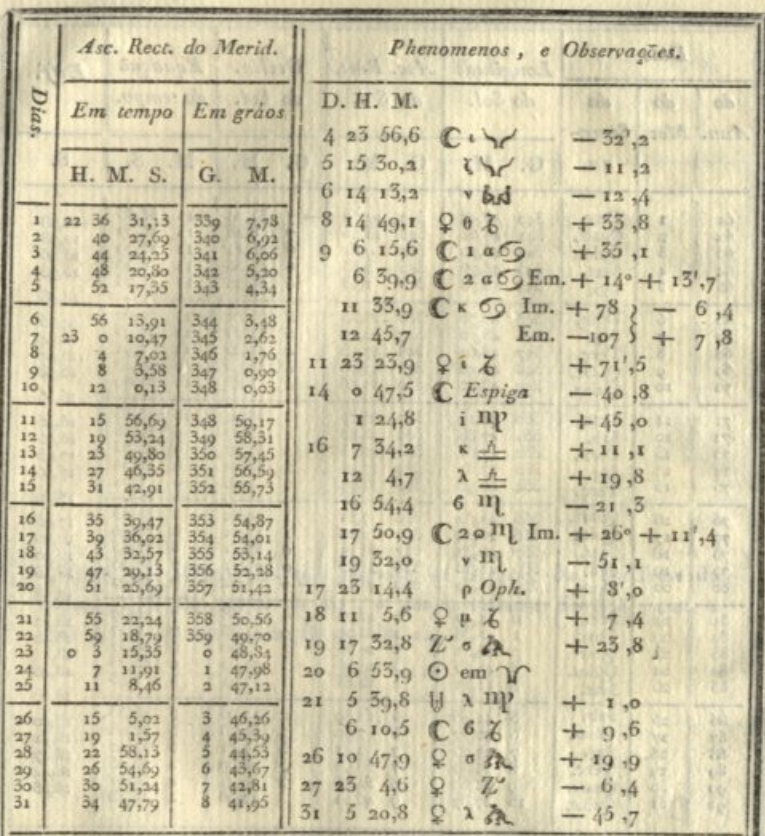 Asc. Rect. do Merid.
Dias.
Em tempo Em gráos
H. M. S. G. M.
1 22 36 31,13 339 7,78
2 40 27,69 340 6,92
3 44 24,25 341 6,06
4 48 20,80 342 5,20
5 52 17,35 343 4,34
6 56 13,91 344 3,48
7 23 0 10,47 345 2,62
8 4 7,02 346 1,76
9 8 3,58 347 0,90
10 12 0,13 348 0,03
11 15 56,69 348 59,17
12 19 53,24 349 58,31
13 23 49,80 350 57,45
14 27 46,35 351 56,59
15 31 42,91 352 55,73
16 35 39,47 353 54,87
17 39 36,02 354 54,01
18 43 32,57 355 53,14
19 47 29,13 356 52,28
20 51 25,69 357 51,42
21 55 22,24 358 50,56
22 59 18,79 359 49,70
23 0 3 15,35 0 48,84
24 7 11,91 1 47,98
25 11 8,46 2 47,12
26 15 5,02 3 46,26
27 19 1,57 4 45,39
28 22 58,13 5 44,53
29 26 54,69 6 43,67
30 30 51,24 7 42,81
31 34 47,79 8 41,95
Phenomenos, e Observações.
D. H. M.
4 23 56,6 ☾ ι ♉ — 32',2
5 15 30,2 ζ ♉ — 11,2
6 14 13,2 ν ♊ — 12,4
8 14 49,1 ♀ θ ♑ + 33,8
9 6 15,6 ☾ 1 α ♋ + 35,1
6 39,9 ☾ 2 α ♋ Em. + 14° + 13',7
11 33,9 ☾ κ ♋ Im. + 78 } — 6,4
12 45,7 Em. —107 } + 7,8
11 23 23,9 ♀ ι ♑ + 71',5
14 0 47,5 ☾ Espiga — 40,8
1 24,8 i ♍ + 45,0
16 7 34,2 κ ♎ + 11,1
12 4,7 λ ♎ + 19,8
16 54,4 6 ♏ — 21,3
17 50,9 ☾ 2 ο ♏ Im. + 26° + 11',4
19 32,0 ν ♏ — 51,1
17 23 14,4 ρ Oph. + 8',0
18 11 5,6 ♀ μ ♑ + 7,4
19 17 32,8 σ ♒ + 23,8
20 6 53,9 ☉ em ♈
21 5 39,8 ♅ λ ♍ + 1,0
6 10,5 ☾ 6 ♑ + 9,6
26 10 47,9 ♀ σ ♒ + 19,9
27 23 4,6 ♀ — 6,4
31 5 20,8 ♀ λ ♒ — 45,7